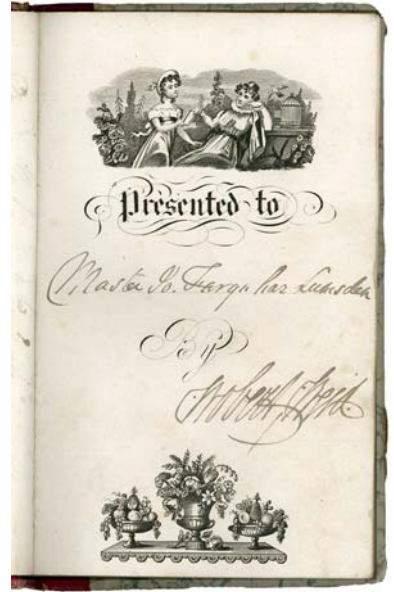 Presented to
Master Jo. Farquhar Lumsden
By
Robert Reid